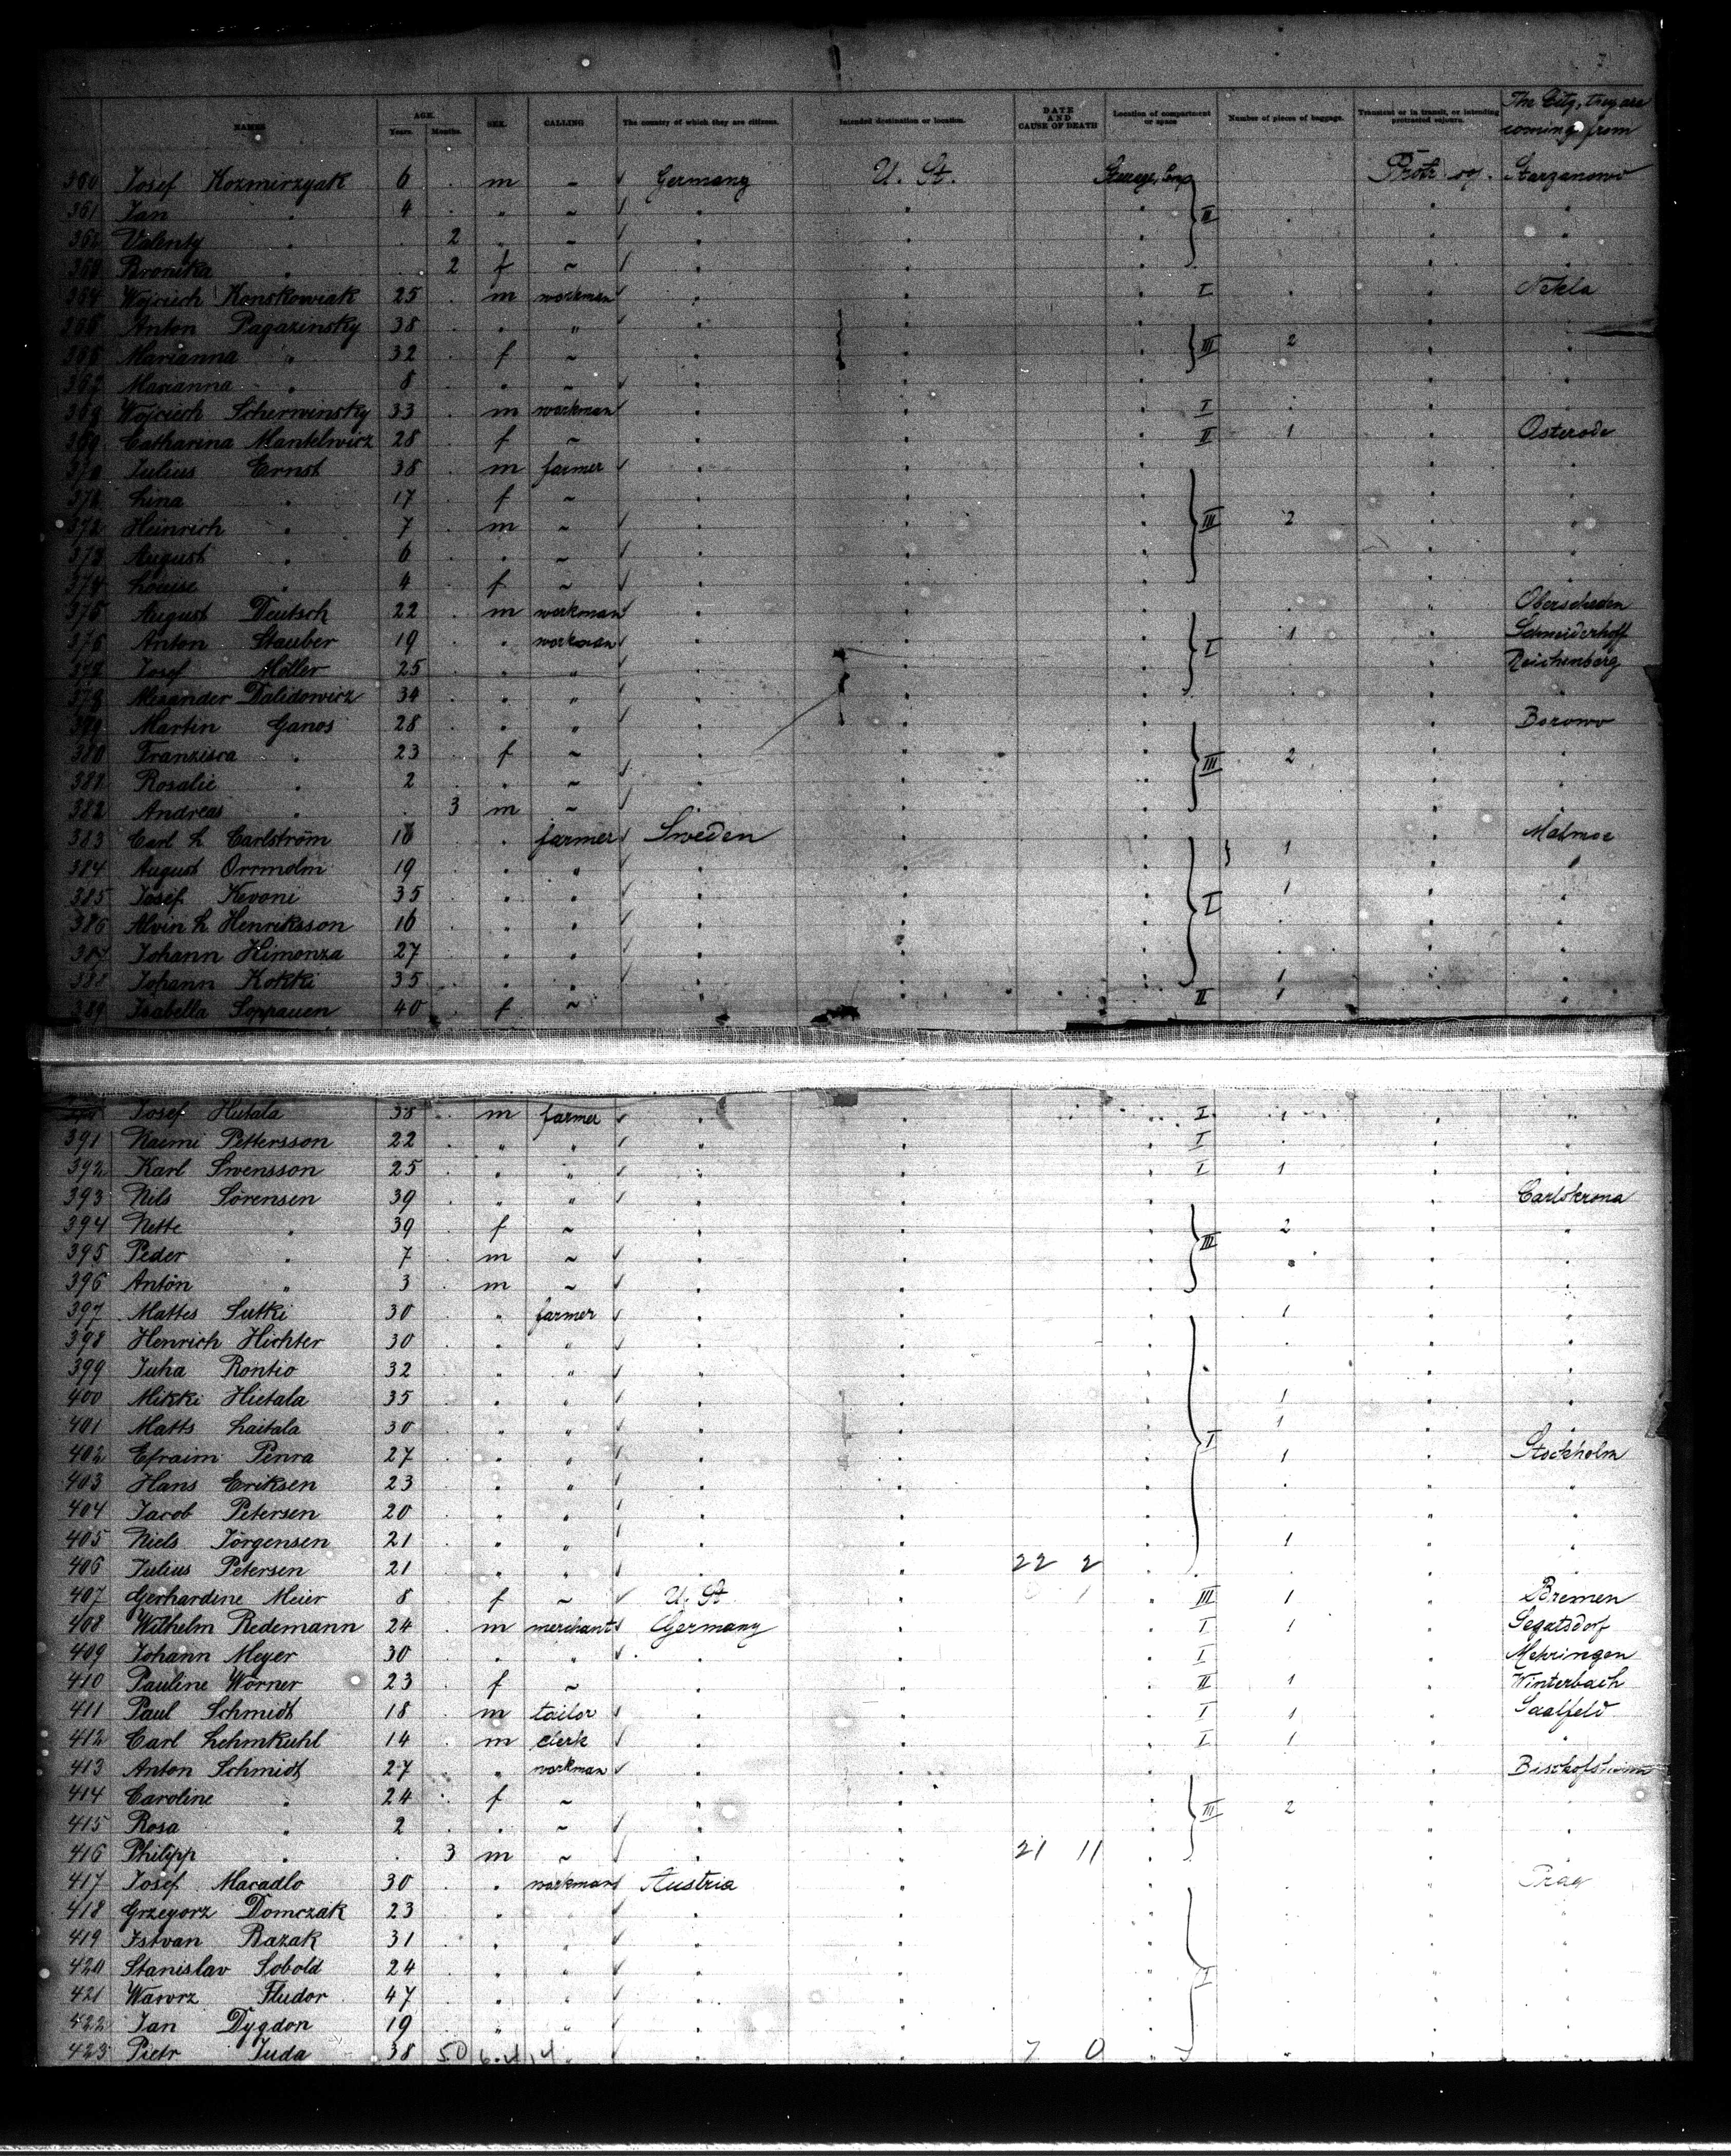 7
NAMES AGE. Years. Months. SEX. CALLING The country of which they are citizens. Intended destination or location. DATE AND CAUSE OF DEATH Location of compartment or space Number of pieces of baggage. Transient or in transit, or intending protracted sojourn. The City, they are coming from
360 Josef Kozmirzyak 6 . m ~ ✓ Germany U. St. Steerage, Protr. soj. Starzanowo
361 Jan " 4 . " ~ ✓ II
362 Valenty " . 2 " ~ ✓
363 Bronika " . 2 f ~ ✓
364 Wojciech Konskowiak 25 . m workman ✓ I Nekla
365 Anton Pagazinsky 38 . " " ✓
366 Marianna " 32 . f ~ III 2
367 Marianna " 8 . " ~ ✓
368 Wojciech Scherwinsky 33 . m workman ✓ I
369 Catharina Mankelwicz 28 . f ~ II 1 Osterode
370 Julius Ernst 38 . m farmer ✓
371 Lina " 17 . f ~
372 Heinrich " 7 . m ~ ✓ III 2
373 August " 6 . " ~ ✓
374 Louise " 4 . f ~ ✓
375 August Deutsch 22 . m workman ✓ Oberscheden
376 Anton Stauber 19 . " workman ✓ I 1 Schneiderhoff
377 Josef Möller 25 . " " ✓ Reichenberg
378 Alexander Dalidowicz 34 . " " ✓
379 Martin Ganos 28 . " " ✓ Borowo
380 Franzisca " 23 . f ~ III 2
381 Rosalie " 2 . " ~ ✓
382 Andreas " . 3 m ~ ✓
383 Carl L. Carlström 18 . " farmer ✓ Sweden 1 Malmoe
384 August Orrmolm 19 . " " ✓
385 Josef Kevoni 35 . " " ✓ I 1
386 Alvin L. Henriksson 16 . " " ✓
387 Johann Himonza 27 . " " ✓
388 Johann Kokki 35 . " " ✓ 1
389 Isabella Soppauen 40 . f ~ II 1
Josef Hutala 38 . m farmer ✓ I 1
391 Kaimi Pettersson 22 . " " ✓ I
392 Karl Swensson 25 . " " ✓ I 1
393 Nils Sörensen 39 . " " ✓ Carlskrona
394 Nette " 39 . f ~ III 2
395 Peder " 7 . m ~ ✓
396 Anton " 3 . m ~ ✓
397 Mattes Sutki 30 . " farmer ✓ 1
398 Henrich Hichter 30 . " " ✓
399 Juha Rontio 32 . " " ✓
400 Mikki Hietala 35 . " " ✓ 1
401 Matts Laitala 30 . " " ✓ 1
402 Efraim Penra 27 . " " ✓ I 1 Stockholm
403 Hans Eriksen 23 . " " ✓
404 Jacob Petersen 20 . " " ✓
405 Niels Jörgensen 21 . " " ✓ 1
406 Julius Petersen 21 . " " 22 2
407 Gerhardine Meier 8 . f ~ ✓ U. St. III 1 Bremen
408 Wilhelm Redemann 24 . m merchant ✓ Germany I 1 Segatsdorf
409 Johann Meyer 30 . " " ✓ I Mehringen
410 Pauline Wörner 23 . f ~ II 1 Winterbach
411 Paul Schmidt 18 . m tailor ✓ I 1 Saalfeld
412 Carl Lehmkuhl 14 . m clerk ✓ I 1
413 Anton Schmidt 27 . " workman ✓ Bischofsheim
414 Caroline " 24 . f ~ III 2
415 Rosa " 2 . " ~ ✓
416 Philipp " . 3 m ~ ✓ 21 11
417 Josef Macadlo 30 . " workman ✓ Austria Prag
418 Grzegorz Domczak 23 . " " ✓
419 Istvan Bazak 31 . " " ✓
420 Stanislav Sobold 24 . " " ✓ I
421 Wawrz Fludor 47 . " " ✓
422 Jan Dygdon 19 . " " ✓
423 Pietr Juda 38 50 7 0